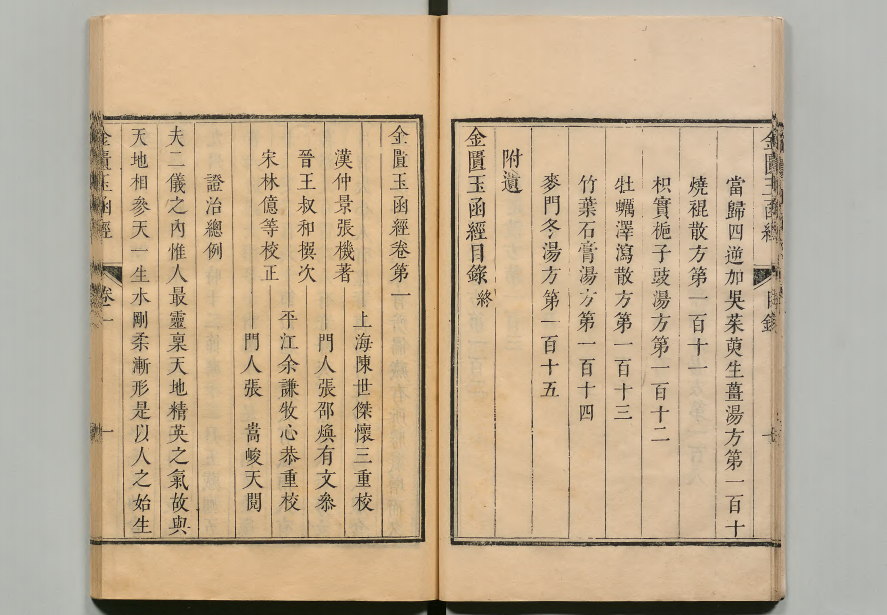 當歸四逆加吳茱萸生薑湯方第一百十
燒裩散方第一百十一
枳實梔子豉湯方第一百十二
牡蠣澤瀉散方第一百十三
竹葉石膏湯方第一百十四
麥門冬湯方第一百十五
附遺
金匱玉函經目錄終
金匱玉函經卷第一
漢仲景張機著 上海陳世傑懷三重校
晉王叔和撰次 門人張邵煥有文叅
宋林億等校正 平江余謙牧心恭重校
門人張 嵩峻天閱
證治總例
夫二儀之內惟人最靈稟天地精英之氣故與
天地相參天一生水剛柔漸形是以人之始生
金匱玉函經 卷一 一